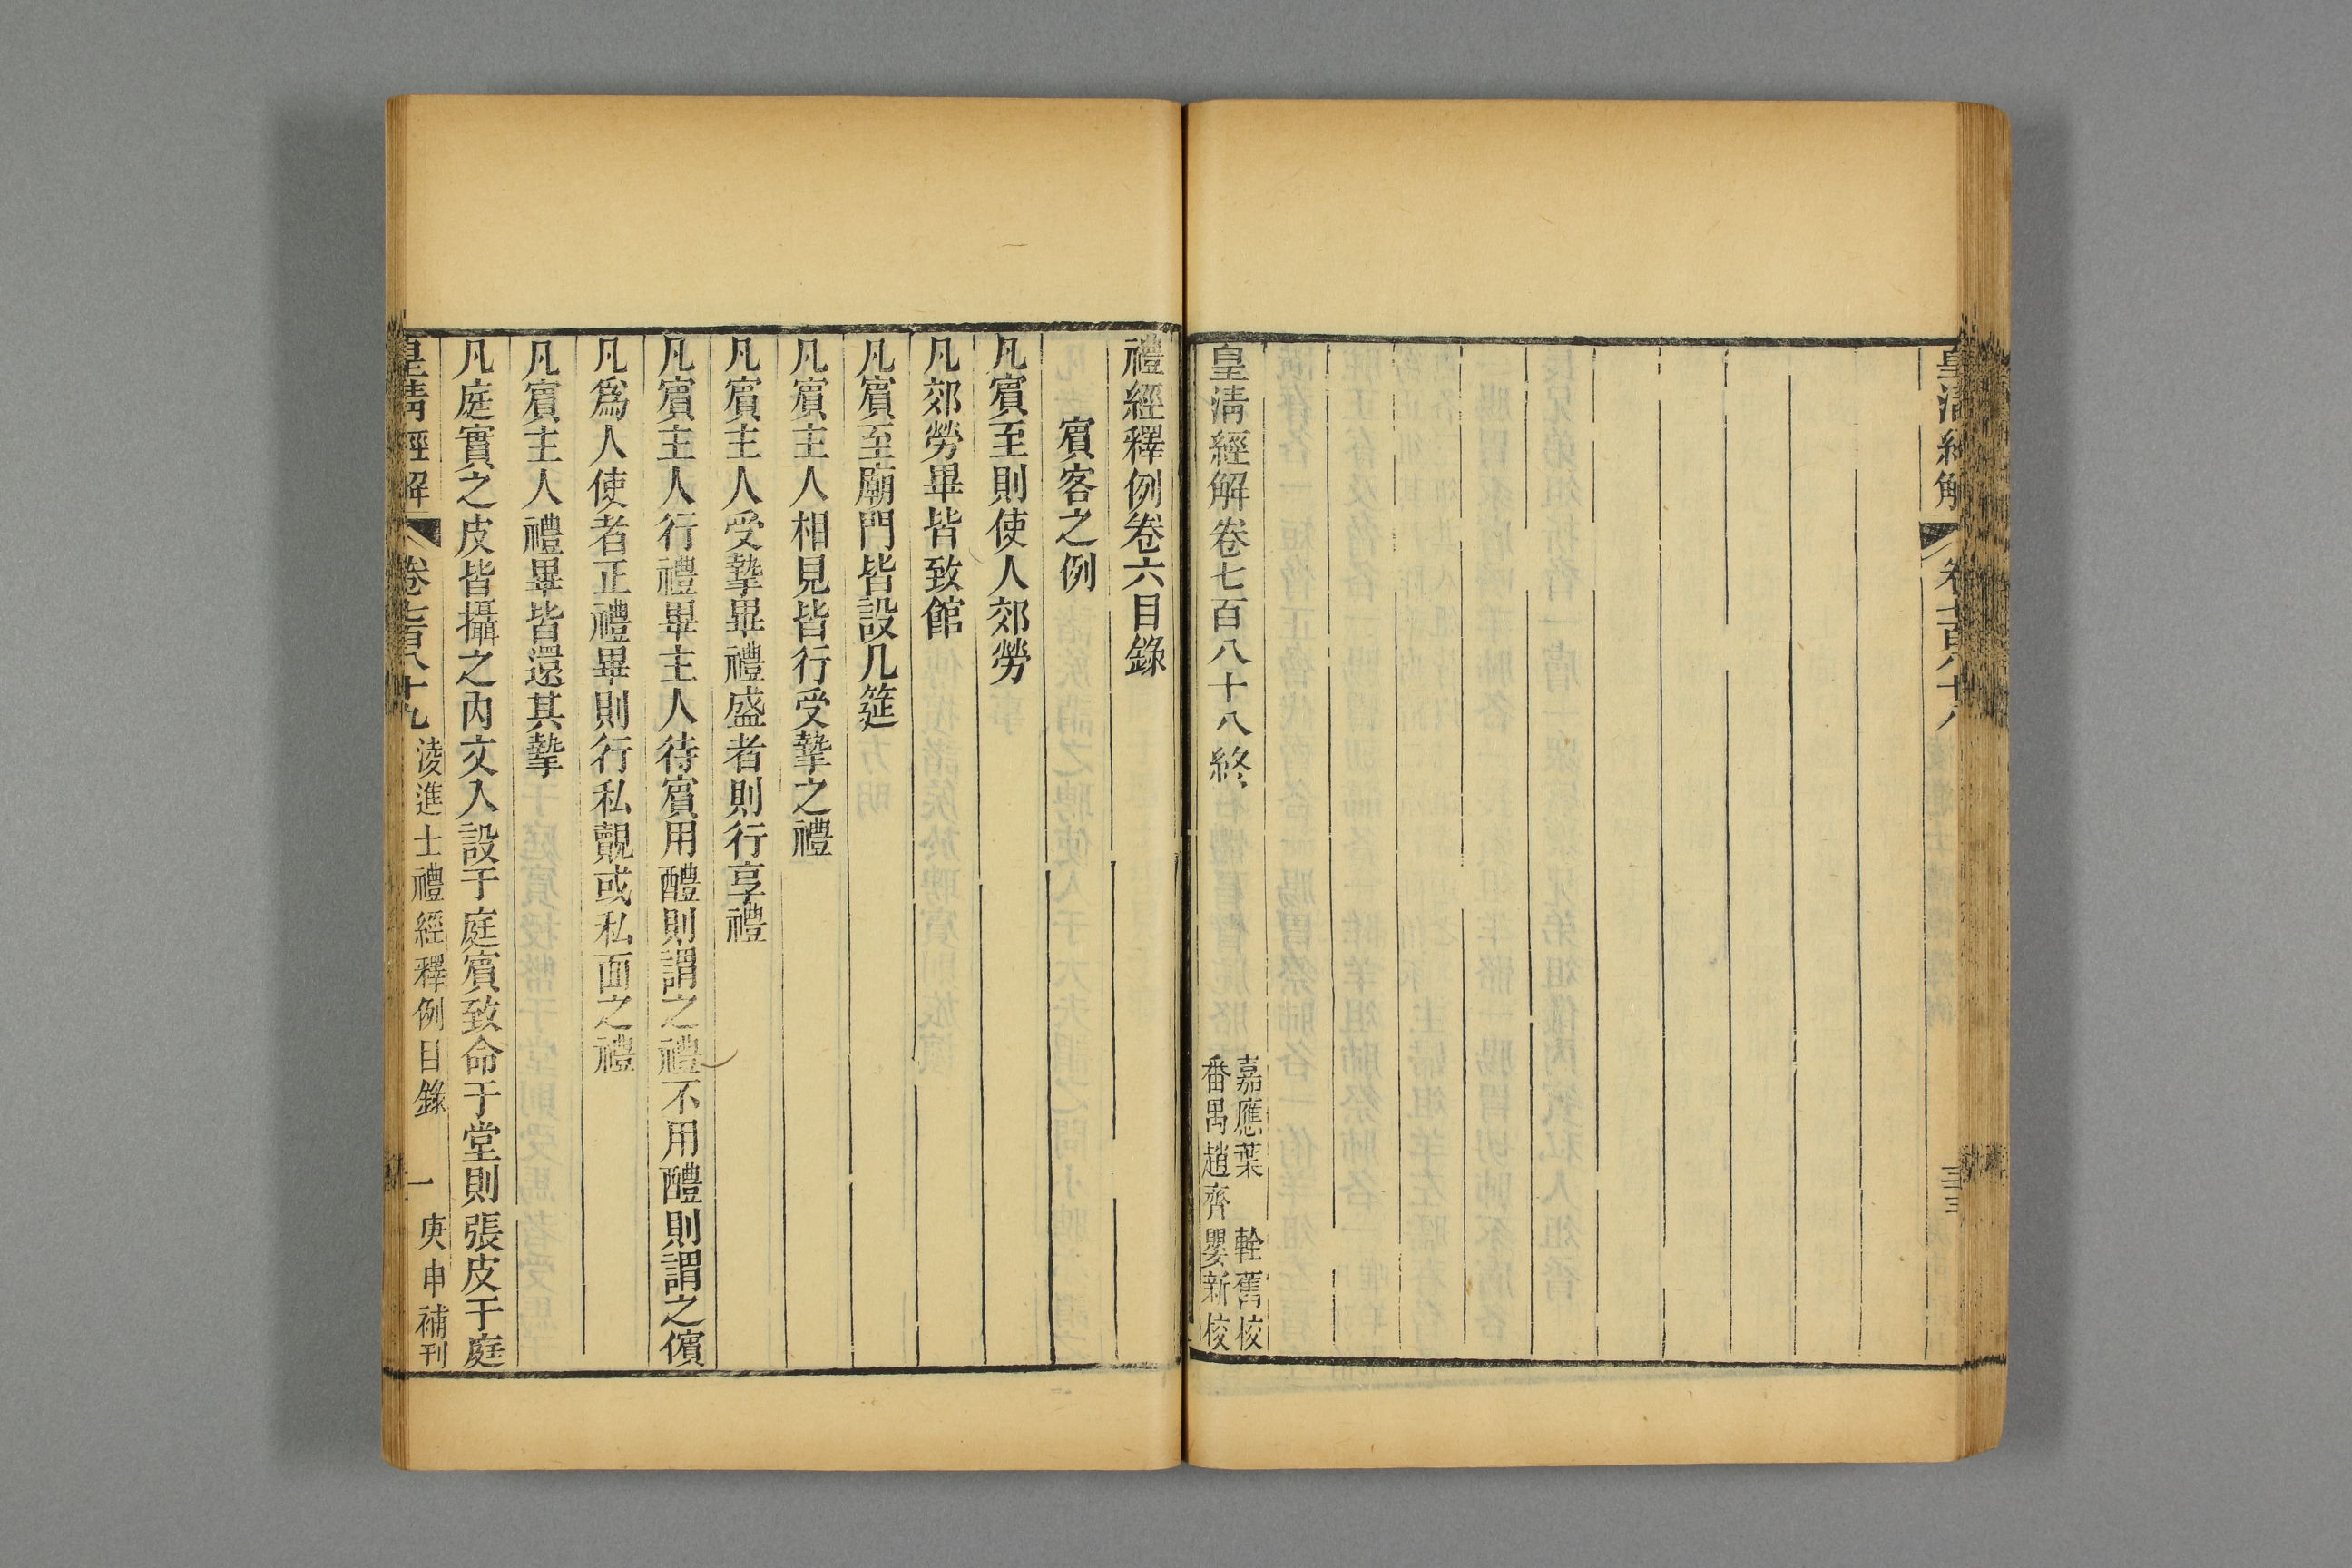 皇清經解
卷七百八十八
三三
皇清經解卷七百八十八終
嘉應葉輇舊校
番禺趙齊嬰新校
禮經釋例卷六目錄
賓客之例
凡賓至則使人郊勞
凡郊勞畢皆致館
凡賓至廟門皆設几筵
凡賓主人相見皆行受摯之禮
凡賓主人受摯畢禮盛者則行享禮
凡賓主人行禮畢主人待賓用醴則謂之禮不用醴則謂之儐
凡爲人使者正禮畢則行私覿或私面之禮
凡賓主人禮畢皆還其摯
凡庭實之皮皆攝之內文入設于庭賓致命于堂則張皮于庭
皇清經解
卷七百八十九
淩進士禮經釋例目錄
一
庚申補刊